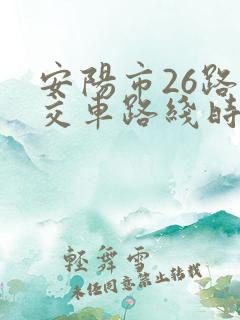 安陽市26路
交車路綫時
輕舞雪
未經同意禁止轉載